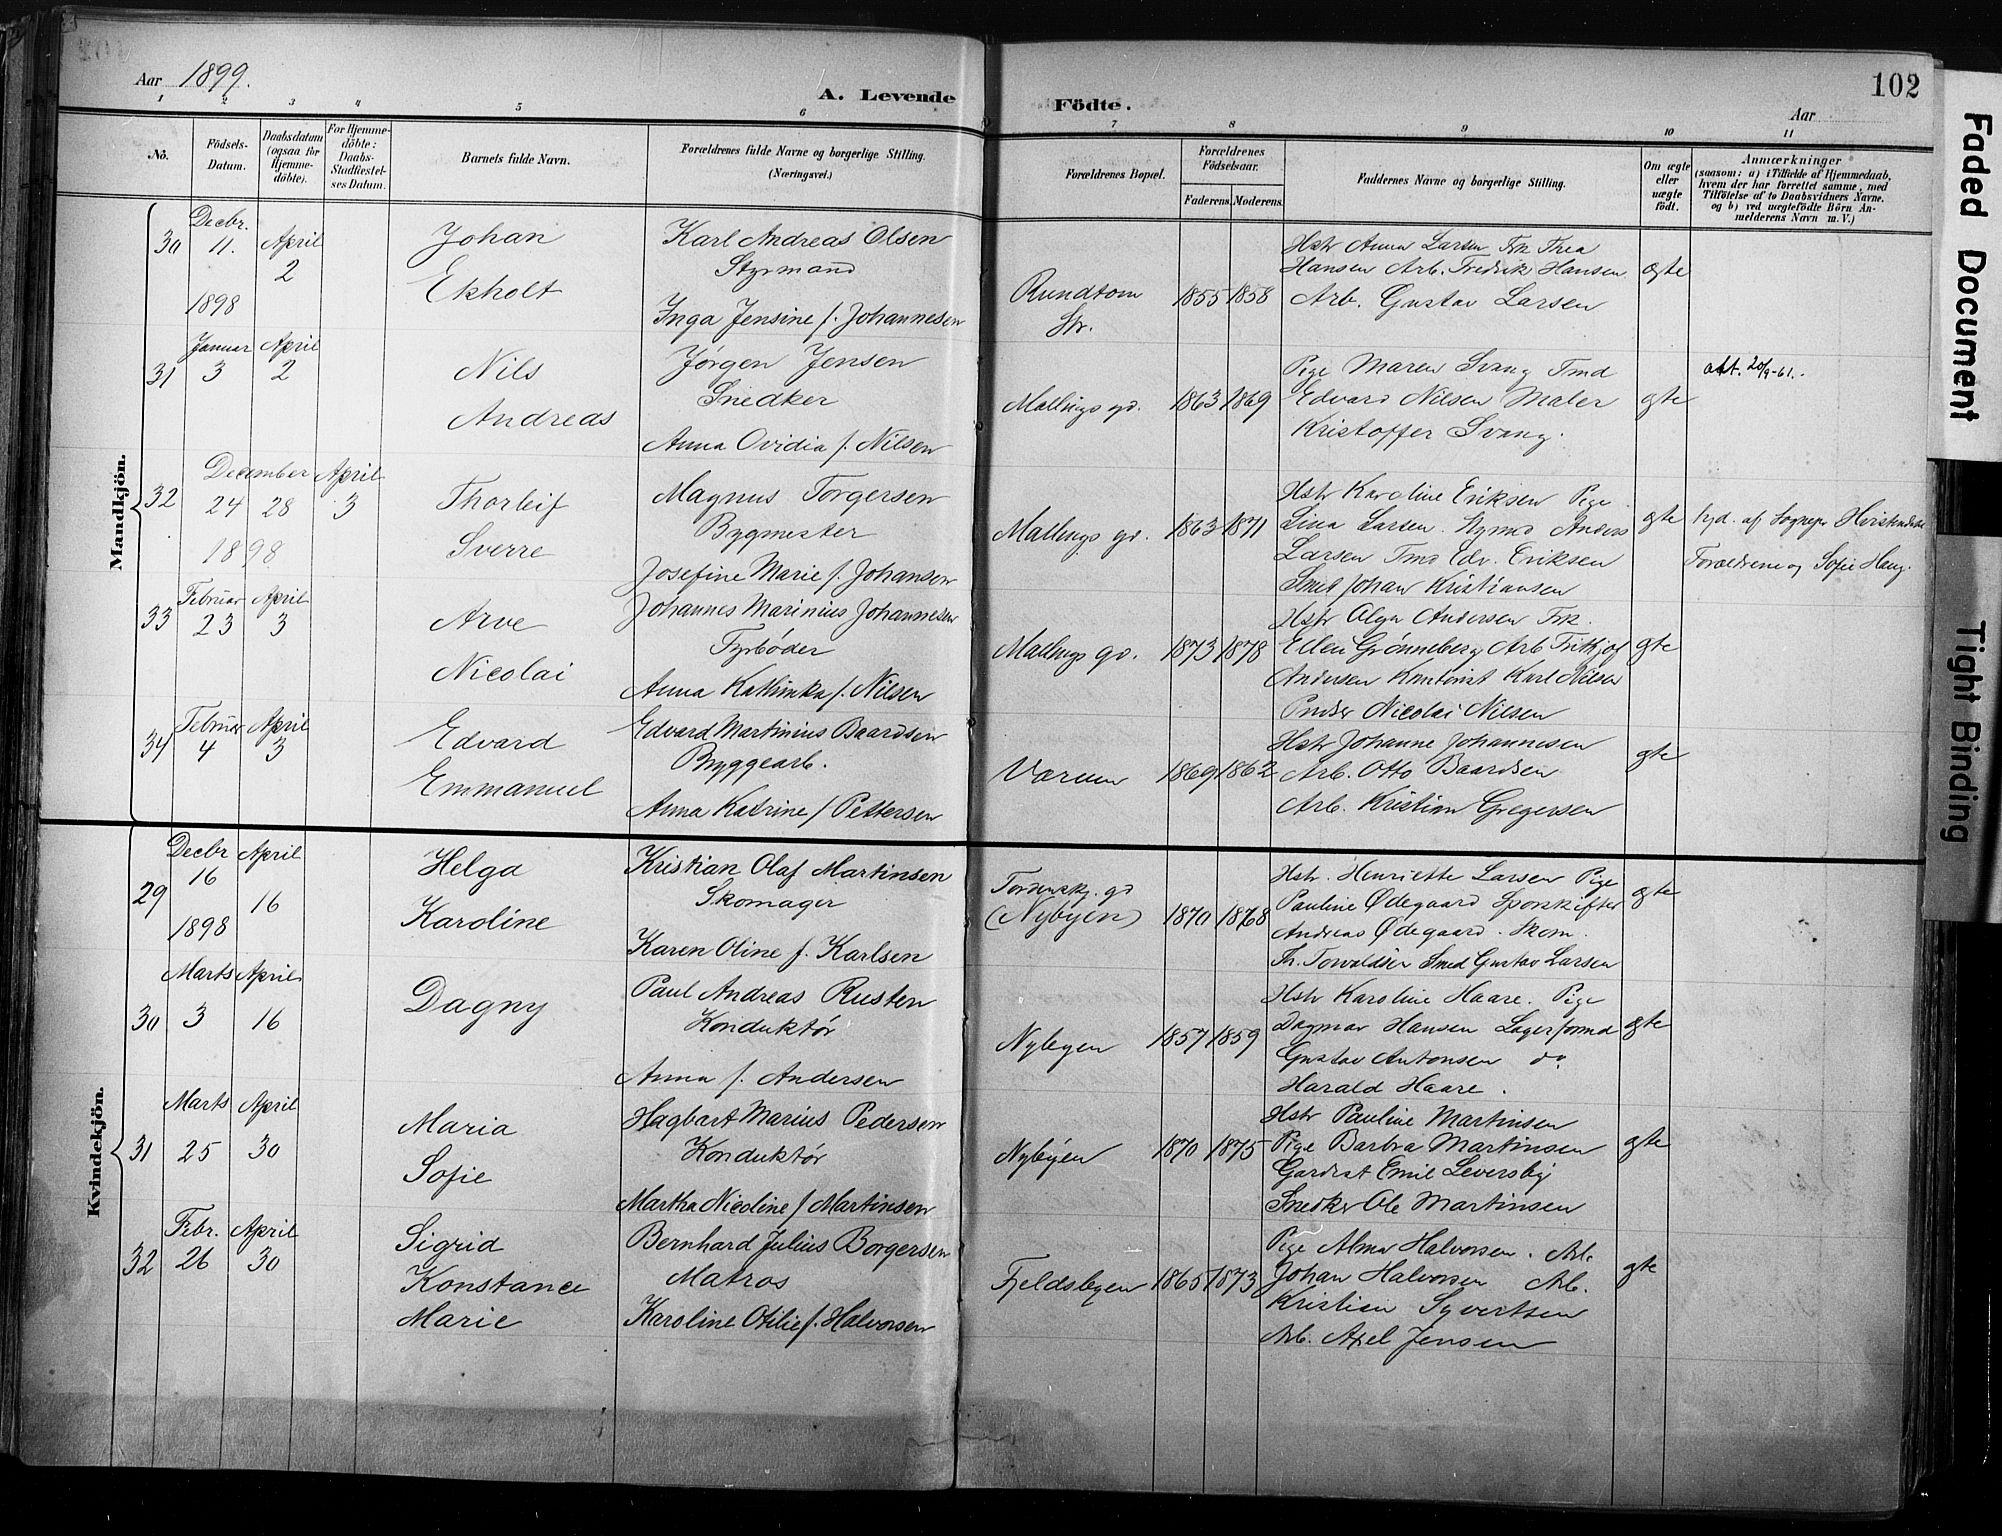 Aar 1899.
A. Levende Födte.
102
Aar
1 2 3 4 5 6 7 8 9 10 11
No.
Födsels-Datum.
Daabsdatum (ogsaa for Hjemme-döbte).
For Hjemme-döbte: Daabs-Stadfæstel-ses Datum.
Barnets fulde Navn.
Forældrenes fulde Navne og borgerlige Stilling.
(Næringsvei.)
Forældrenes Bopæl.
Forældrenes Födselsaar.
Faderens. Moderens.
Faddernes Navne og borgerlige Stilling.
Om ægte eller uægte födt.
Anmærkninger
(saasom: a) i Tilfælde af Hjemmedaab,
hvem der har forrettet samme, med
Tilföielse af to Daabsvidners Navne.
og b) ved uægtefödte Börn An-
melderens Navn m. V.)
Mandkjön.
30 Decbr. 11. 1898 April 2
Johan
Ekholt
Karl Andreas Olsen
Styrmand
Inga Jensine f. Johannesen
Rundtom
Str.
1855 1858
Hstr Anna Larsen Frk Thea
Hansen Arb. Fredrik Hansen
Arb. Gustav Larsen
ægte
31 Januar 3 April 2
Nils
Andreas
Jørgen Jensen
Snedker
Anna Ovidia f. Nilsen
Mallings gd. 1863 1869
Pige Maren Svang Tmd
Edvard Nilsen Maler
Kristoffer Svang.
ægte
att. 20/9-61.
32 December 24 28 1898 April 3
Thorleif
Sverre
Magnus Torgersen
Bygmester
Josefine Marie f. Johansen
Mallings gd. 1863 1871
Hstr Karoline Eriksen Pige
Lina Larsen. Stymd Anders
Larsen Tmd Edv. Eriksen
Smed Johan Kristiansen
ægte
hjd. af Sognepr
Forældrene og Sofie Haug.
33 Februar 23 April 3
Arve
Nicolai
Johannes Marinius Johannesen
Fyrbøder
Anna Kathinka f. Nilsen
Mallings gd. 1873 1878
Hstr Olga Andersen Frk.
Ellen Grønneberg Arb Frithjof
Andersen Kontorist Karl Nilsen
Pudser Nicolai Nilsen
ægte
34 Februar 4 April 3
Edvard
Emmanuel
Edvard Martinius Baardsen
Byggearb.
Anna Katrine f Pettersen
Værum 1869 1862
Hstr Johanne Johannesen
Arb. Otto Baardsen
Arb. Kristian Gregersen
ægte
Kvindekjön.
29 Decbr 16 1898 April 16
Helga
Karoline
Kristian Olaf Martinsen
Skomager
Karen Oline f. Karlsen
Tordenskj. gd
(Nybyen) 1870 1868
Hstr. Henriette Larsen Pige
Pauline Ødegaard Sporskifter
Andreas Ødegaard. Skom.
Th. Torvaldsen Smed Gustav Larsen
ægte
30 Marts 3 April 16
Dagny
Paul Andreas Rusten
Konduktør
Anna f. Andersen
Nybyen 1857 1859
Hstr Karoline Haare. Pige
Dagmar Hansen Lagerformd
Gustav Antonsen do
Harald Haare.
ægte
31 Marts 25 April 30
Maria
Sofie
Hagbart Marius Pedersen
Konduktør
Martha Nicoline f Martinsen
Nybyen 1870 1875
Hstr Pauline Martinsen
Pige Barbra Martinsen
Gardist Emil Leversby
Snedker Ole Martinsen
ægte
32 Febr. 26 April 30
Sigrid
Konstance
Marie
Bernhard Julius Borgersen
Matros
Karoline Otilie f. Halvorsen
Fjeldsbyen 1865 1873
Pige Alma Halvorsen. Arb.
Johan Halvorsen Arb.
Kristian Syvertsen
Arb. Axel Jensen
ægte
Faded Document
Tight Binding